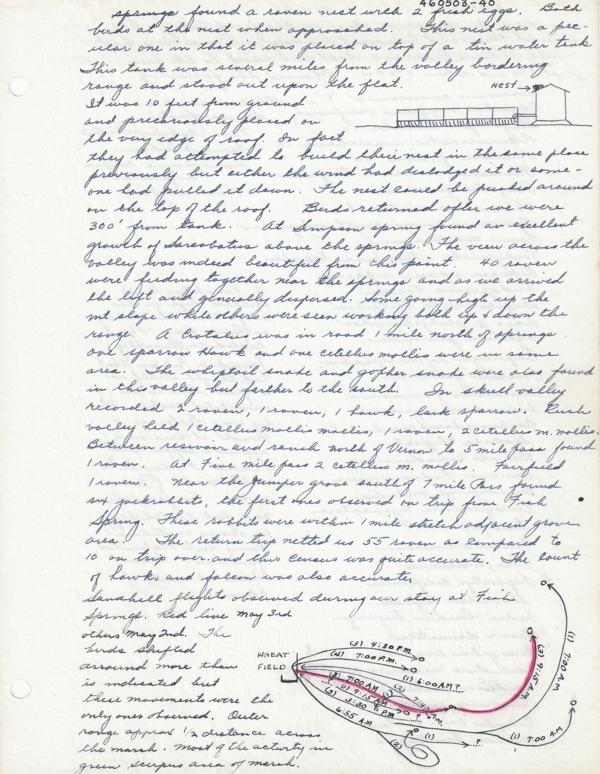 460503-40
springs found a raven nest with 2 fresh eggs. Both
birds at the nest when approached. This nest was a pec-
uliar one in that it was placed on top of a tin water tank
This tank was several miles from the valley bordering
range and stood out upon the flat.
NEST
It was 10 feet from ground
and precariously placed on
the very edge of roof. In fact
they had attempted to build their nest in the same place
previously but either the wind had dislodged it or some-
one had pulled it down. The nest could be pushed around
on the top of the roof. Birds returned after we were
300' from tank. At Simpson spring found an excellent
growth of Sarcobatus above the springs. The view across the
valley was indeed beautiful from this point. 40 raven
were feeding together near the springs and as we arrived
the left and generally dispersed. Some going high up the
mt slope while others were seen working both up & down the
range. A Crotalus was in road 1 mile north of springs
one sparrow Hawk and one citellus mollis were in same
area. The whiptail snake and gopher snake were also found
in this valley but farther to the south. In skull valley
recorded 2 raven, 1 raven, 1 hawk, lark sparrow. Rush
valley held 1 citellus mollis mollis, 1 raven, 2 citellus m. mollis.
Between resevoir and ranch north of Vernon to 5 mile pass found
1 raven. At Five mile pass 2 citellus m. mollis. Fairfield
1 raven. Near the juniper grove south of 7 mile Pass found
six jackrabbits, the first ones observed on trip from Fish
Spring. These rabbits were within 1 mile stretch adjacent grove
area. The return trip netted us 55 raven as compared to
10 on trip over and this census was quite accurate. The count
of hawks and falcon was also accurate.
Sandhill flights observed during our stay at Fish
Springs. Red line may 3rd
others may 2nd. The
birds shifted
arround more than
is indicated but
these movements were the
only ones observed. Outer
range approx 1/2 distance across
the marsh. Most of the activity in
green scirpus area of marsh.
WHEAT
FIELD
(3) 4:30 P.M.
(4) 7:00 P.M.
(1) 6:00 AM ?
(3) 7:00 AM
(2)
(1) 9:15 AM
(3) 3:30 P.M.
6:55 A.M
(1)
?
(2)
(2) 9:15 A.M.
(1) 7:00 A.M.
(1) 7:00 A.M